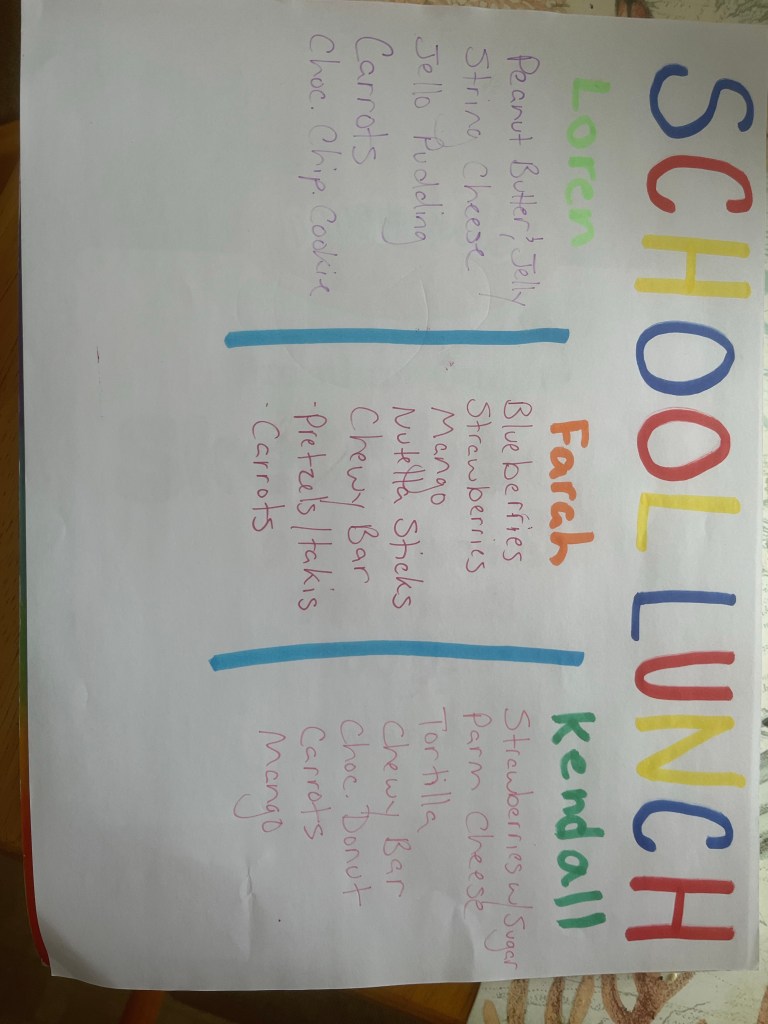 SCHOOL LUNCH
Loren
Peanut Butter, Jelly
String Cheese
Jello Pudding
Carrots
Choc. Chip. Cookie
Farah
Blueberries
Strawberries
Mango
Nutella Sticks
Chewy Bar
· Pretzels/takis
· Carrots
Kendall
Strawberries w/ Sugar
Parm Cheese
Tortilla
Chewy Bar
Choc. Donut
Carrots
Mango